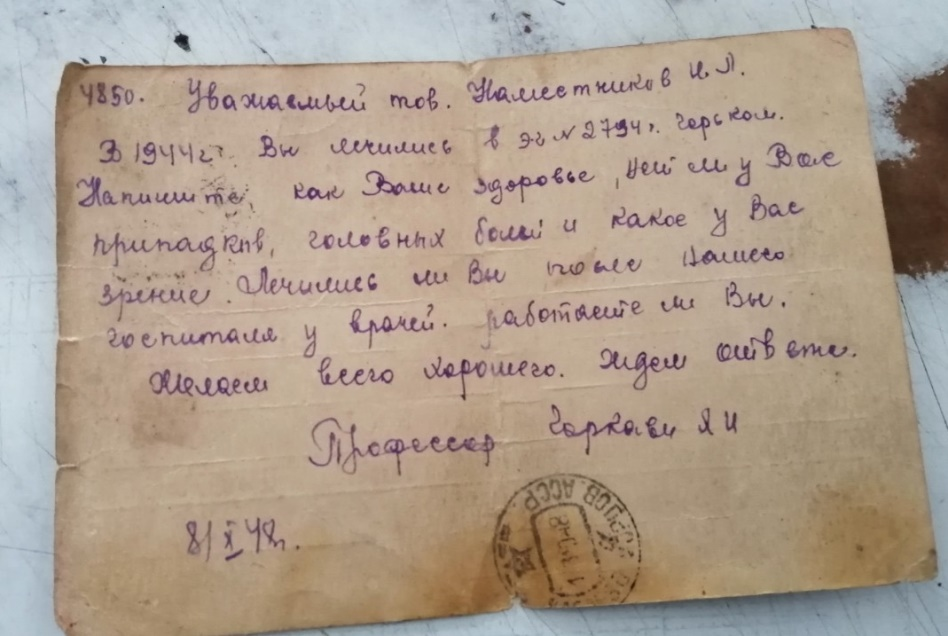 4850. Уважаемый тов. Наместников И.Л.
В 1944г. Вы лечились в эг № 2794 г. Горьком.
Напишите, как Ваше здоровье, нет ли у Вас
припадков, головных болей и какое у Вас
зрение. Лечились ли Вы после нашего
госпиталя у врачей. работаете ли Вы.
Желаем всего хорошего. Ждем ответа.
Профессор Я И
8/X 48г.
АССР